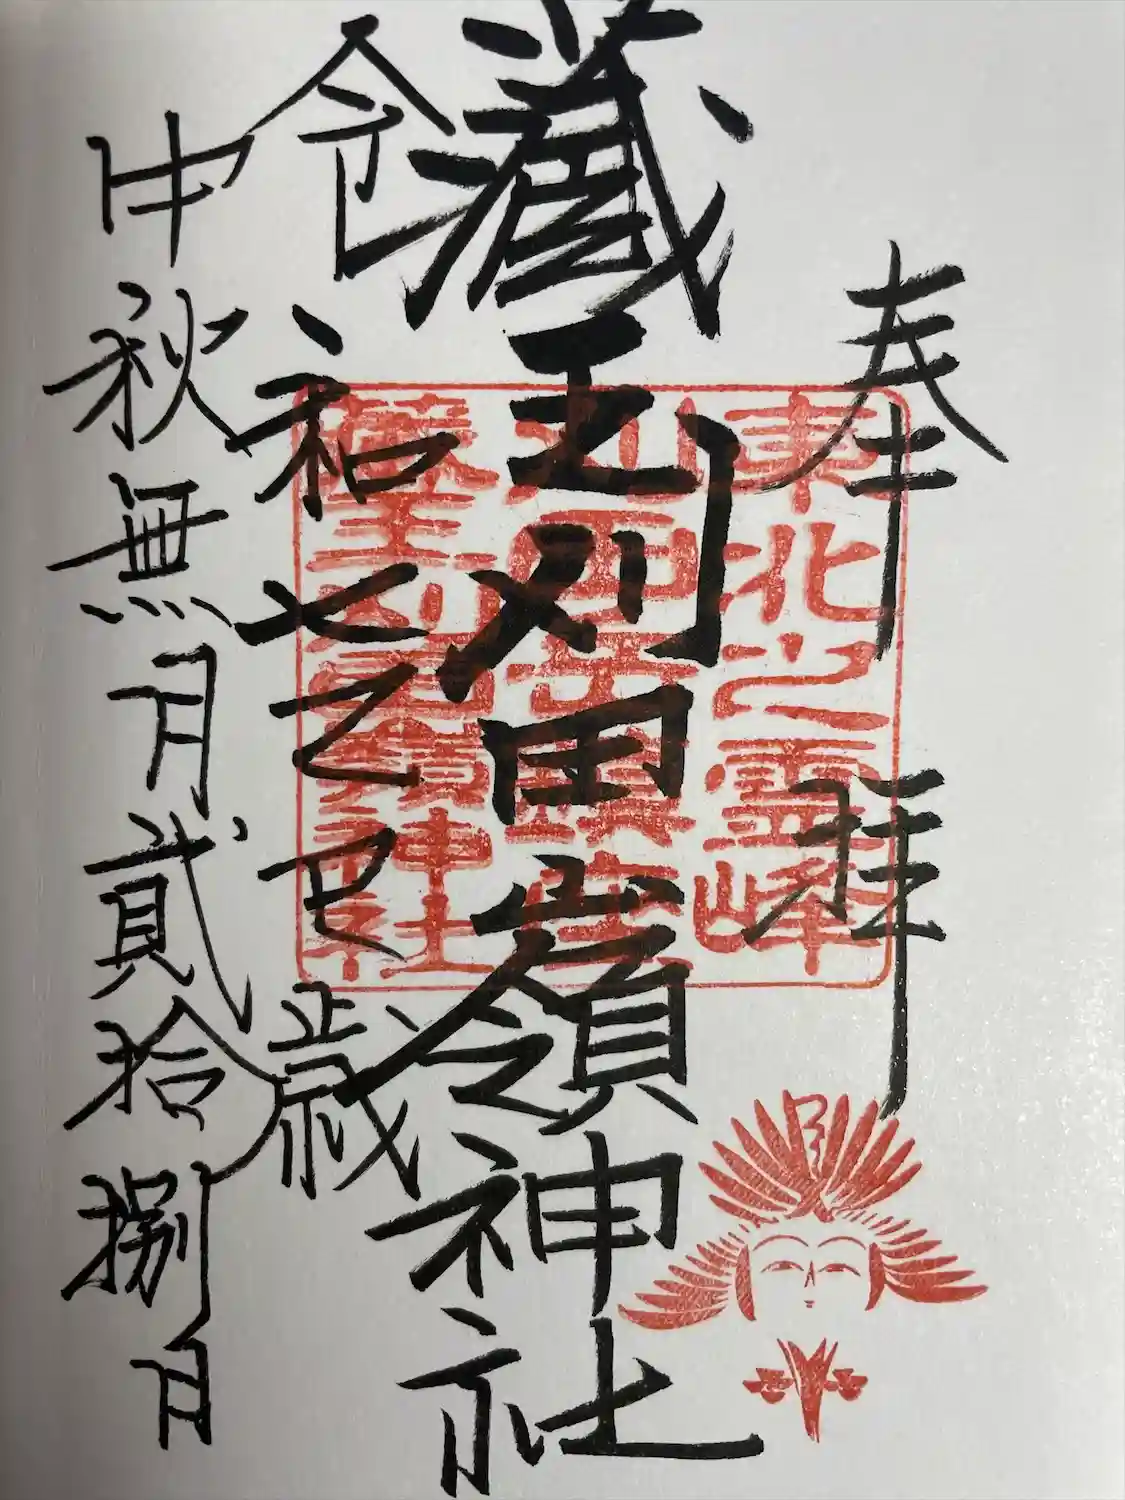 奉拝
藏王刈田嶺神社
令和七乙巳歳
中秋無月貳拾捌日
東北之靈峰
藏王刈田嶺神社